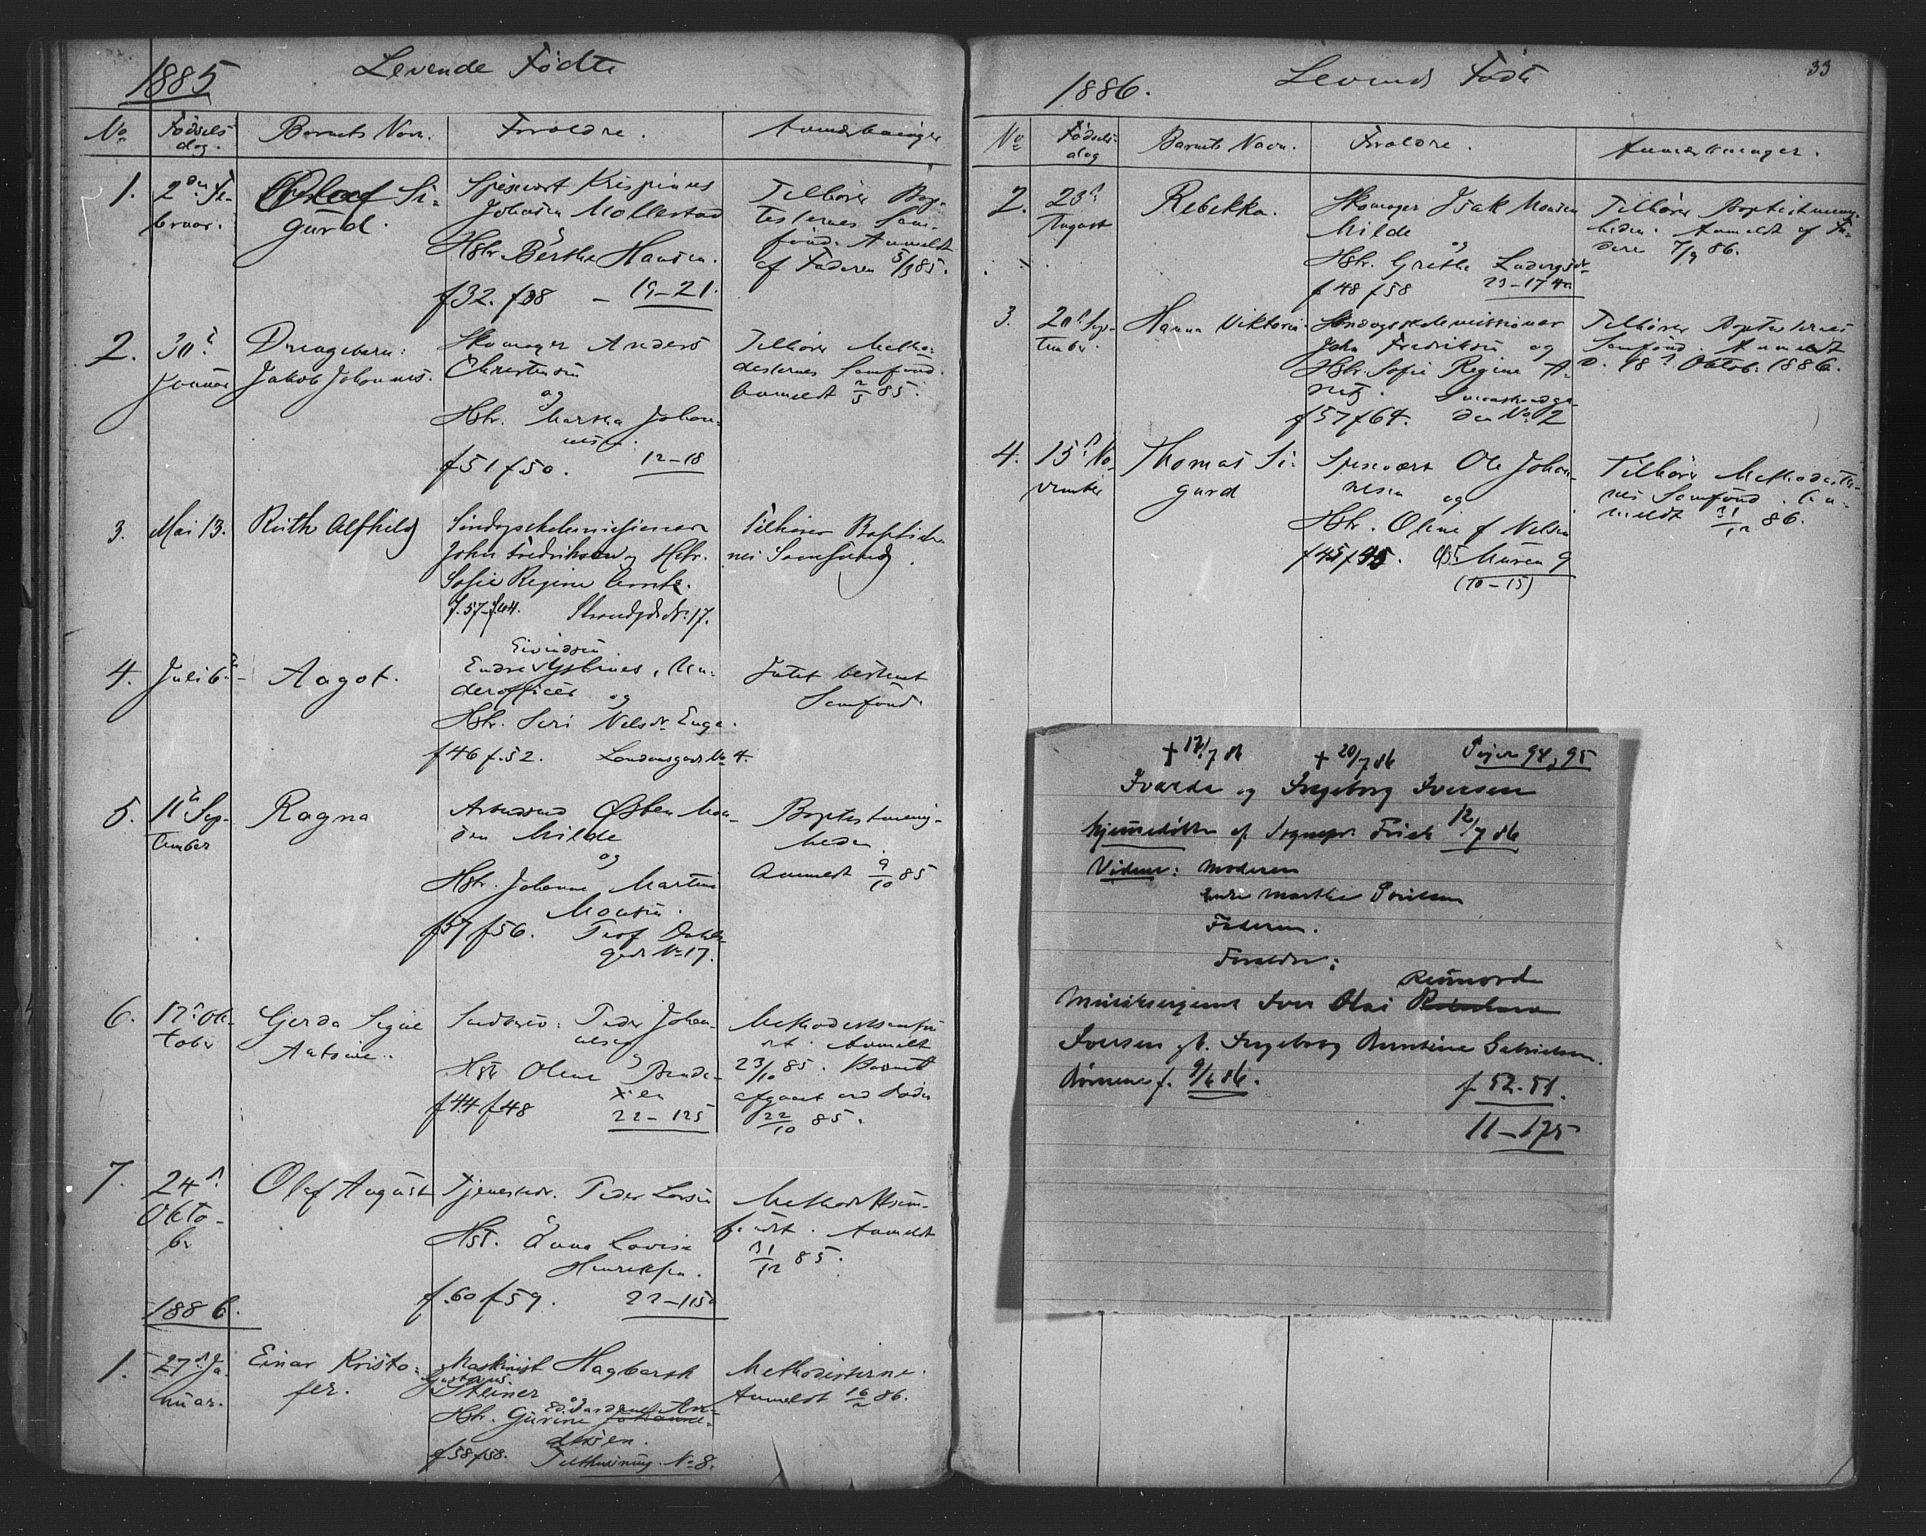 1885
Levende Fødte
No
Fødsels
dag.
Barnets Navn.
Forældre.
Anmærkninger
1.
2den Fe-
bruar.
Olaf Si-
gurd.
Spisevært Krispinus
Johnsen Mollestad
&
Hstr. Berthe Hansen.
f32. f38 – 19–21.
Tilhører Bap-
tisternes Sam-
fund. Anmeldt
af Faderen 5/3 85.
2.
30te
Januar
Drengebarn:
Jakob Johannes.
Skomager Anders
Christensen
og
Hstr. Martha Johan-
nesen.
f51 f50. 12–18
Tilhører Metho-
disternes Samfund.
Anmeldt 2/5 85.
3.
Mai 13.
Ruth Alfhild
Søndagsskolemissionær
John Fredriksen og Hstr.
Sofie Regine
f.57–f.64. Strandgd. Nr. 17.
Tilhører Baptister-
nes Samfund.
4.
Juli 6te
Aagot.
Eivindsen
Endre, Un-
derofficer
og
Hstr. Siri Nelsdr. Enge.
f46 f.52. No 4.
Intet bestemt
Samfund.
5.
11te Sep-
tember
Ragna
Arbeidsmd Østen Mon-
sen Milde
og
Hstr. Johanne Martine
Monsen.
f57 f56.
gade No 17.
Baptistmenig-
heden.
Anmeldt 9/10 85
6.
17de Ok-
tober
Gerda Signe
Peder Johan-
nesen
&
Hstr Oline
f44 f48
22–125
Methodistsamfun-
det. Anmeldt
23/10 85. Barnet
afgaaet ved Døden
22/10 85.
7.
24de
Okto-
ber
Olaf August
Tjenestedr. Peder Larsen
&
Hst. Anna Lovise
Henriksen.
f.60 f59. 22–115a
Methodistsam-
fundet. Anmeldt
31/12 85.
1886.
1.
27de Ja-
nuar.
Einar Kristo-
fer.
Maskinist Hagbarth
Gustavus
Steiner
og
Hstr. Gurine
f58 f58. No 8.
Methodisterne.
Anmeldt 16/2 86.
33
1886.
Levende Fødte
No
Fødsels-
dag
Barnets Navn.
Forældre.
Anmærkninger.
2.
23de
August
Rebekka.
Skomager Isak Monsen
Milde
og
Hstr. Grethe
f48 f58 23–174a
Tilhører Baptistmenig-
heden. Anmeldt af Fa-
deren 7/9 86.
3.
20de Sep-
tember.
Hanna Viktoria
Søndagsskolemissionær
John Fredriksen og
Hstr. Sofie Regine
f57 f64. No 2
Tilhører Baptisternes
Samfund. Anmeldt
d. 18de Oktob. 1886.
4.
15de No-
vember
Thomas Si-
gurd
Spisevært Ole Johan-
nesen
og
Hstr. Oline f. Nelsen
f45 f45. Ø. Muren 9
(10–15)
Tilhører Methodister-
nes Samfund. An-
meldt 31/12 86.
+ 17/7 86
+ 20/7 86
Pigen 94, 95
Ivarda og Ingeborg Iversen
hjemmedøbte af Sognepr. Frich 12/7 86
Vidner: Moderen
Enke Marthe Poulsen
Faderen.
Forældre:
Reimord
Musiksergeant Iver Olai
Iversen gb. Ingeborg Berntine Gabrielsen.
Børnene f. 9/6 86.
f. 52–51.
11–175